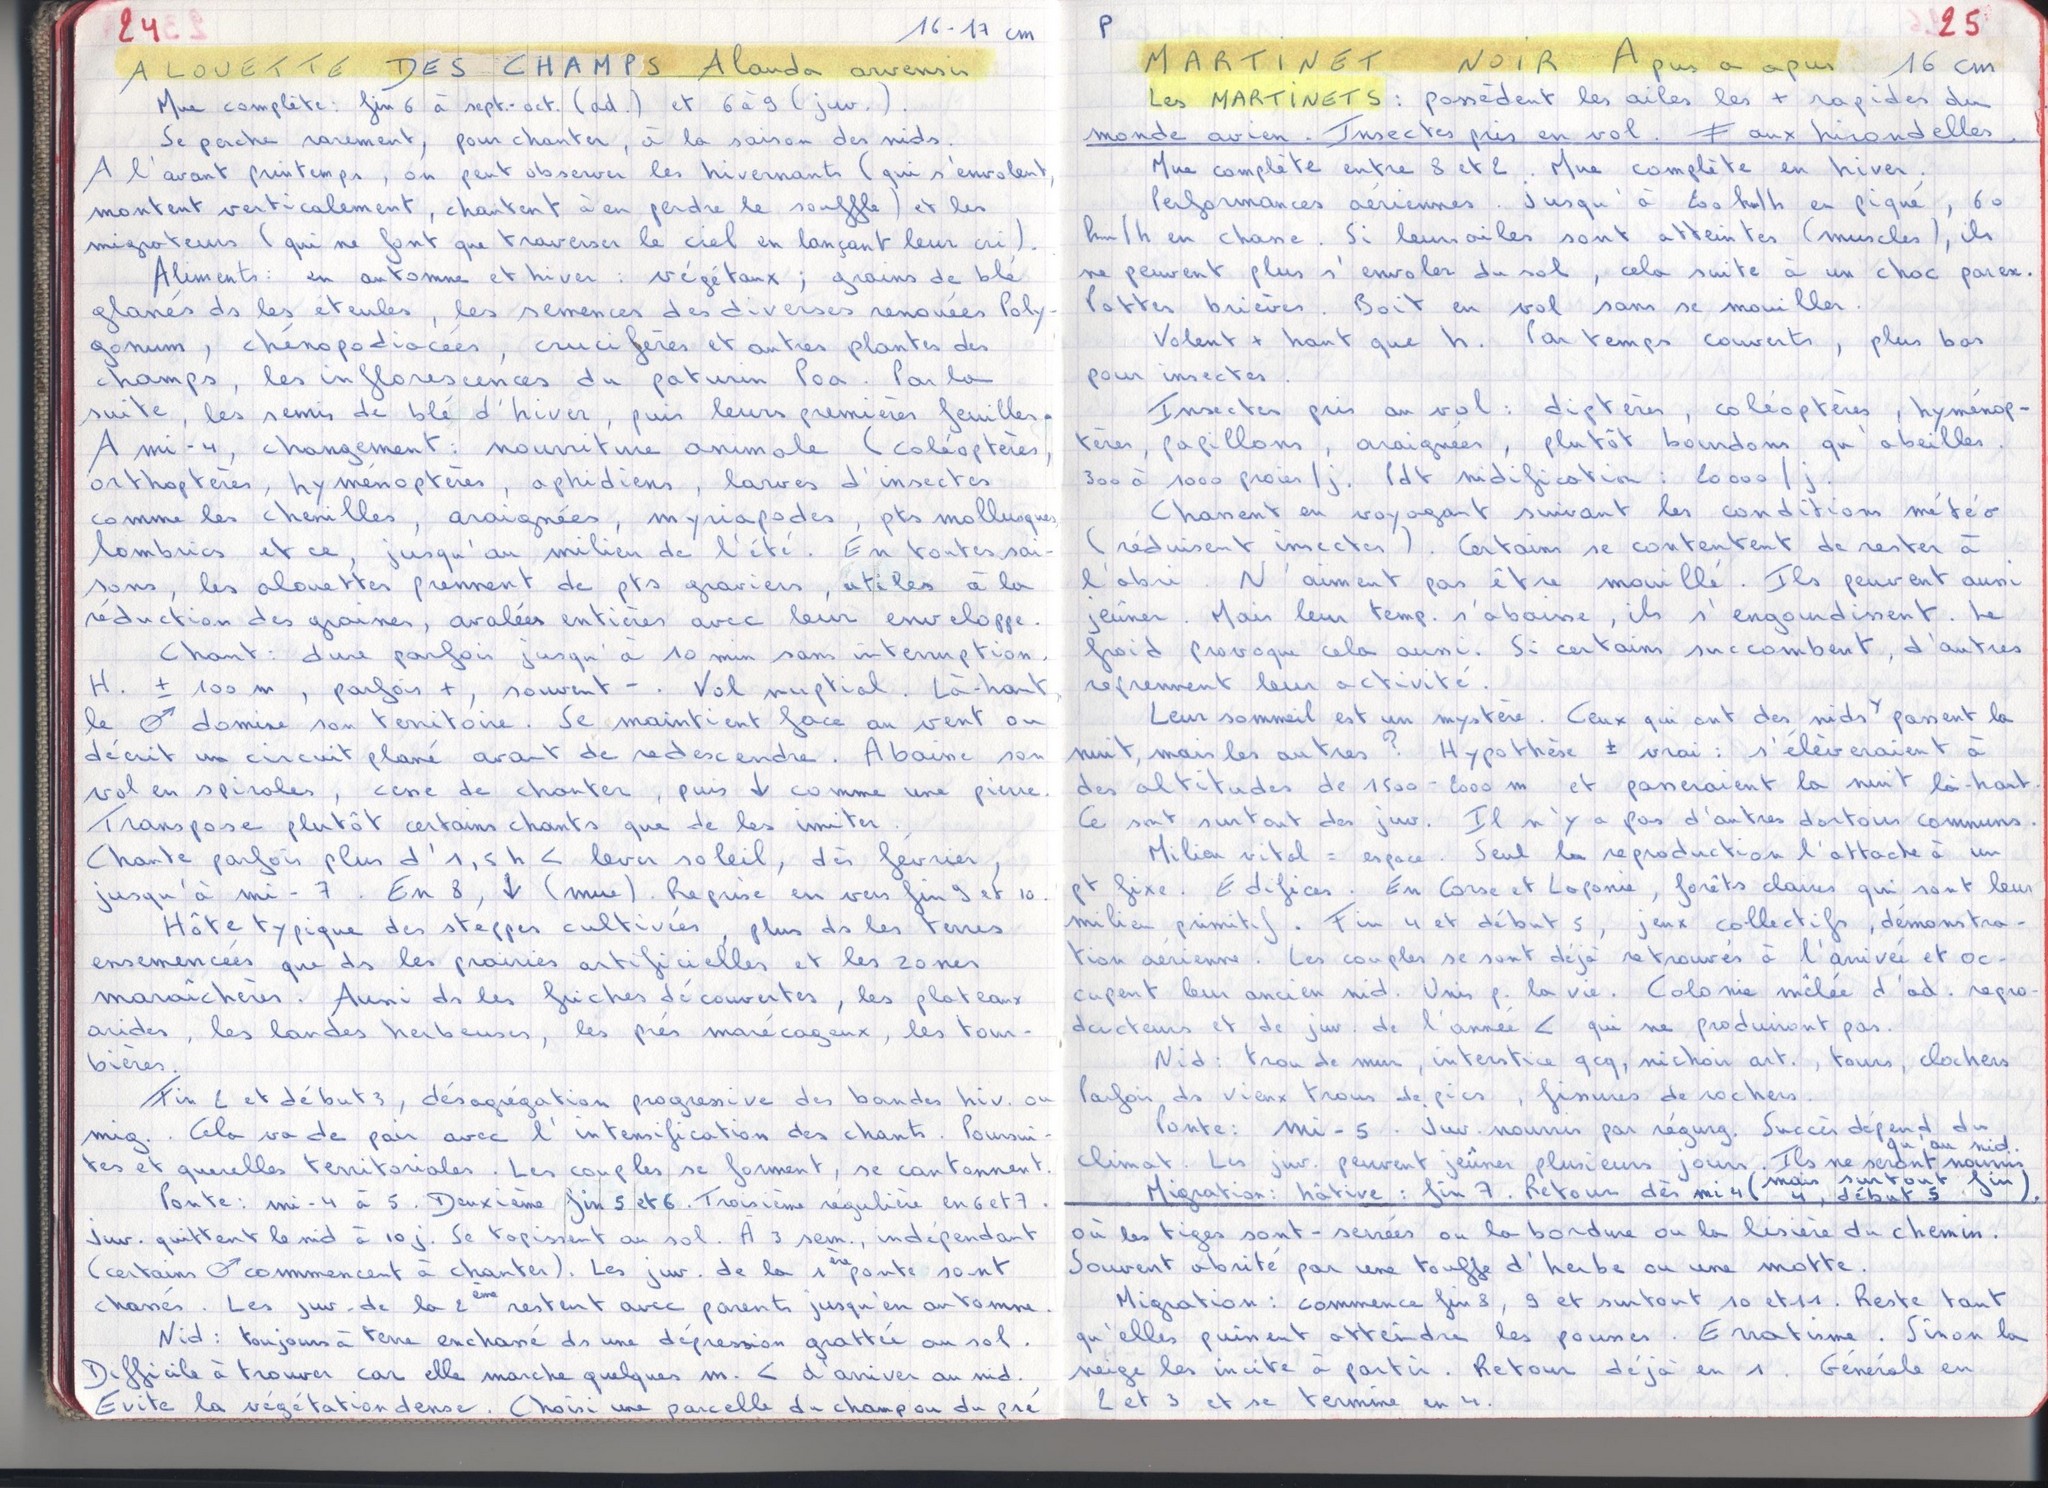 24
16-17 cm
ALOUETTE DES CHAMPS Alauda arvensis
Mue complète: fin 6 à sept.-oct. (ad.) et 6 à 9 (juv.).
Se perche rarement, pour chanter, à la saison des nids.
A l'avant printemps, on peut observer les hivernants (qui s'envolent,
montent verticalement, chantent à en perdre le souffle) et les
migrateurs (qui ne font que traverser le ciel en lançant leur cri).
Aliments: en automne et hiver: végétaux; grains de blé
glanés ds les éteules, les semences des diverses renouées Poly-
gonum, chénopodiacées, crucifères et autres plantes des
champs, les inflorescences du paturin Poa. Par la
suite, les semis de blé d'hiver, puis leurs premières feuilles.
A mi-4, changement: nourriture animale (coléoptères,
orthoptères, hyménoptères, aphidiens, larves d'insectes
comme les chenilles, araignées, myriapodes, pts mollusques,
lombrics et ce, jusqu'au milieu de l'été. En toutes sai-
sons, les alouettes prennent de pts graviers, utiles à la
réduction des graines, avalées entières avec leur enveloppe.
Chant: dure parfois jusqu'à 10 min sans interruption.
H. ± 100 m, parfois +, souvent -. Vol nuptial. Là-haut,
le ♂ domine son territoire. Se maintient face au vent ou
décrit un circuit plané avant de redescendre. Abaisse son
vol en spirales, cesse de chanter, puis ↓ comme une pierre.
Transpose plutôt certains chants que de les imiter.
Chante parfois plus d'1,5 h < lever soleil, dès février,
jusqu'à mi-7. En 8, ↓ (mue). Reprise en vers fin 9 et 10.
Hôte typique des steppes cultivées, plus ds les terres
ensemencées que ds les prairies artificielles et les zones
maraîchères. Aussi ds les friches découvertes, les plateaux
arides, les landes herbeuses, les prés marécageux, les tour-
bières.
Fin 2 et début 3, désagrégation progressive des bandes hiv. ou
mig. . Cela va de pair avec l'intensification des chants. Poursui-
tes et querelles territoriales. Les couples se forment, se cantonnent.
Ponte: mi-4 à 5. Deuxième fin 5 et 6. Troisième régulière en 6 et 7.
Juv. quittent le nid à 10 j. Se tapissent au sol. A 3 sem., indépendant
(certains ♂ commencent à chanter). Les juv. de la 1ère ponte sont
chassés. Les juv. de la 2ème restent avec parents jusqu'en automne.
Nid: toujours à terre enchassé ds une dépression grattée au sol.
Difficile à trouver car elle marche quelques m. < d'arriver au nid.
Evite la végétation dense. Choisi une parcelle du champ ou du pré
P
25
MARTINET NOIR Apus a apus 16 cm
Les MARTINETS: possèdent les ailes les + rapides du
monde avien. Insectes pris en vol. ≠ aux hirondelles.
Mue complète entre 8 et 2. Mue complète en hiver.
Performances aériennes. Jusqu'à 200 km/h en piqué, 60
km/h en chasse. Si leurs ailes sont atteintes (muscles), ils
ne peuvent plus s'envoler du sol, cela suite à un choc par ex.
Pattes brièves. Boit en vol sans se mouiller.
Volent + haut que h. Par temps couverts, plus bas
pour insectes.
Insectes pris au vol: diptères, coléoptères, hyménop-
tères, papillons, araignées, plutôt bourdons qu'abeilles.
300 à 1000 proies/j. Pdt nidification: 20000/j.
Chassent en voyageant suivant les conditions météo
(réduisent insectes). Certains se contentent de rester à
l'abri. N'aiment pas être mouillé. Ils peuvent aussi
jeûner. Mais leur temp. s'abaisse, ils s'engourdissent. Le
froid provoque cela aussi. Si certains succombent, d'autres
reprennent leur activité.
Leur sommeil est un mystère. Ceux qui ont des nids y passent la
nuit, mais les autres? Hypothèse ± vrai: s'élèveraient à
des altitudes de 1500-2000 m et passeraient la nuit là-haut.
Ce sont surtout des juv. Il n'y a pas d'autres dortoirs communs.
Milieu vital = espace. Seul la reproduction l'attache à un
pt fixe. Edifices. En Corse et Laponie, forêts claires qui sont leur
milieu primitif. Fin 4 et début 5, jeux collectifs, démonstra-
tion aérienne. Les couples se sont déjà retrouvés à l'arrivée et oc-
cupent leur ancien nid. Unis p. la vie. Colonie mêlée d'ad. repro-
ducteurs et de juv. de l'année < qui ne produiront pas.
Nid: trou de mur, interstice qcq, nichoir art., tours, clochers
Parfois ds vieux trous de pics, fissures de rochers.
Ponte: mi-5. Juv. nourris par régurg. Succès dépend du
climat. Les juv. peuvent jeûner plusieurs jours. Ils ne seront nourris
qu'au nid.
Migration: hâtive: fin 7. Retour dès mi 4 (mais surtout fin
4, début 5).
où les tiges sont-serrées ou la bordure ou la lisière du chemin.
Souvent abrité par une touffe d'herbe ou une motte.
Migration: commence fin 8, 9 et surtout 10 et 11. Reste tant
qu'elles puissent atteindre les pousses. Erratisme. Sinon la
neige les incite à partir. Retour déjà en 1. Générale en
2 et 3 et se termine en 4.